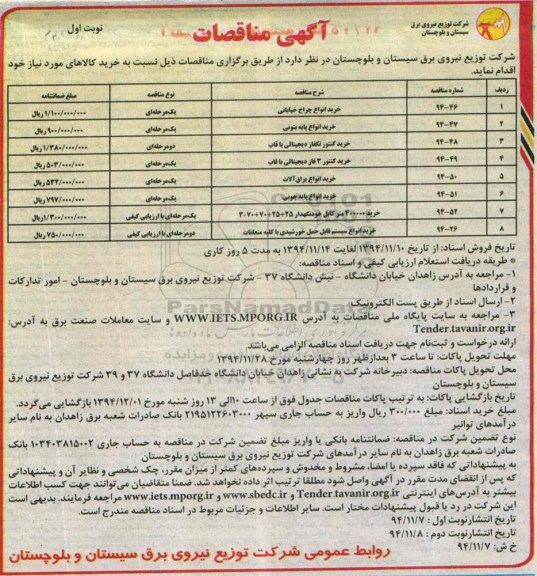 شرکت توزیع نیروی برق
سیستان و بلوچستان
آگهی مناقصات
نوبت اول
شرکت توزیع نیروی برق سیستان و بلوچستان در نظر دارد از طریق برگزاری مناقصات ذیل نسبت به خرید کالاهای مورد نیاز خود
اقدام نماید.
ردیف شماره مناقصه شرح مناقصه نوع مناقصه مبلغ ضمانتنامه
۱ ۹۴-۴۶ خرید انواع چراغ خیابانی یک‌مرحله‌ای ۱/۱۰۰/۰۰۰/۰۰۰ ریال
۲ ۹۴-۴۷ خرید انواع پایه بتونی یک‌مرحله‌ای ۹۰۰/۰۰۰/۰۰۰ ریال
۳ ۹۴-۴۸ خرید کنتور تکفاز دیجیتالی با قاب دومرحله‌ای ۱/۳۸۰/۰۰۰/۰۰۰ ریال
۴ ۹۴-۴۹ خرید کنتور ۳ فاز دیجیتالی با قاب یک‌مرحله‌ای ۵۰۳/۰۰۰/۰۰۰ ریال
۵ ۹۴-۵۰ خرید انواع یراق‌آلات یک‌مرحله‌ای ۵۳۲/۰۰۰/۰۰۰ ریال
۶ ۹۴-۵۱ خرید انواع پایه چوبی یک‌مرحله‌ای ۷۹۷/۰۰۰/۰۰۰ ریال
۷ ۹۴-۵۲ خرید ۳۰۰۰۰۰ متر کابل خودنگهدار ۲۵+۲۵+۷۰+۷۰*۳ یک‌مرحله‌ای با ارزیابی کیفی ۱/۳۰۰/۰۰۰/۰۰۰ ریال
۸ ۹۴-۲۶ خرید انواع سیستم قابل حمل خورشیدی با کلیه متعلقات دومرحله‌ای با ارزیابی کیفی ۷۵۰/۰۰۰/۰۰۰ ریال
تاریخ فروش اسناد: از تاریخ ۱۳۹۴/۱۱/۱۰ لغایت ۱۳۹۴/۱۱/۱۴ به مدت ۵ روز کاری
* طریقه دریافت استعلام ارزیابی کیفی و اسناد مناقصه:
۱- مراجعه به آدرس زاهدان خیابان دانشگاه - نبش دانشگاه ۳۷ - شرکت توزیع نیروی برق سیستان و بلوچستان - امور تدارکات
و قراردادها
۲- ارسال اسناد از طریق پست الکترونیک
۳- مراجعه به سایت پایگاه ملی مناقصات به آدرس WWW.IETS.MPORG.IR و سایت معاملات صنعت برق به آدرس:
Tender.tavanir.org.ir
ارائه درخواست و ثبت‌نام جهت دریافت اسناد مناقصه الزامی می‌باشد.
مهلت تحویل پاکات: تا ساعت ۳ بعدازظهر روز چهارشنبه مورخ ۱۳۹۴/۱۱/۲۸
محل تحویل پاکات مناقصه: دبیرخانه شرکت به نشانی زاهدان خیابان دانشگاه حدفاصل دانشگاه ۳۷ و ۳۹ شرکت توزیع نیروی برق
سیستان و بلوچستان
تاریخ بازگشایی پاکات: به ترتیب پاکات مناقصات جدول فوق از ساعت ۱۰الی ۱۳ روز شنبه مورخ ۱۳۹۴/۱۲/۰۱ بازگشایی می‌گردد.
مبلغ خرید اسناد: مبلغ ۳۰۰/۰۰۰ ریال واریز به حساب جاری سپهر ۲۱۹۵۱۲۲۶۰۳۰۰۰ بانک صادرات شعبه برق زاهدان به نام سایر
درآمدهای توانیر
نوع تضمین شرکت در مناقصه: ضمانتنامه بانکی یا واریز مبلغ تضمین شرکت در مناقصه به حساب جاری ۱۰۳۴۰۳۸۱۵۰۰۲ بانک
صادرات شعبه برق زاهدان به نام سایر درآمدهای شرکت توزیع نیروی برق سیستان و بلوچستان
به پیشنهاداتی که فاقد سپرده یا امضا، مشروط و مخدوش و سپرده‌های کمتر از میزان مقرر، چک شخصی و نظایر آن و پیشنهاداتی
که پس از انقضای مدت مقرر در آگهی واصل شود مطلقا ترتیب اثر داده نخواهد شد. ضمنا متقاضیان می‌توانند جهت کسب اطلاعات
بیشتر به آدرس‌های اینترنتی Tender.tavanir.org.ir و www.sbedc.ir و www.iets.mporg.ir مراجعه فرمایند. بدیهی است
این شرکت در رد یا قبول پیشنهادات مختار است. سایر اطلاعات و جزئیات مربوط در اسناد مناقصه مندرج است.
تاریخ انتشارنوبت اول : ۹۴/۱۱/۷
تاریخ انتشارنوبت دوم : ۹۴/۱۱/۸
خ ش: ۹۴/۱۱/۷
روابط عمومی شرکت توزیع نیروی برق سیستان و بلوچستان